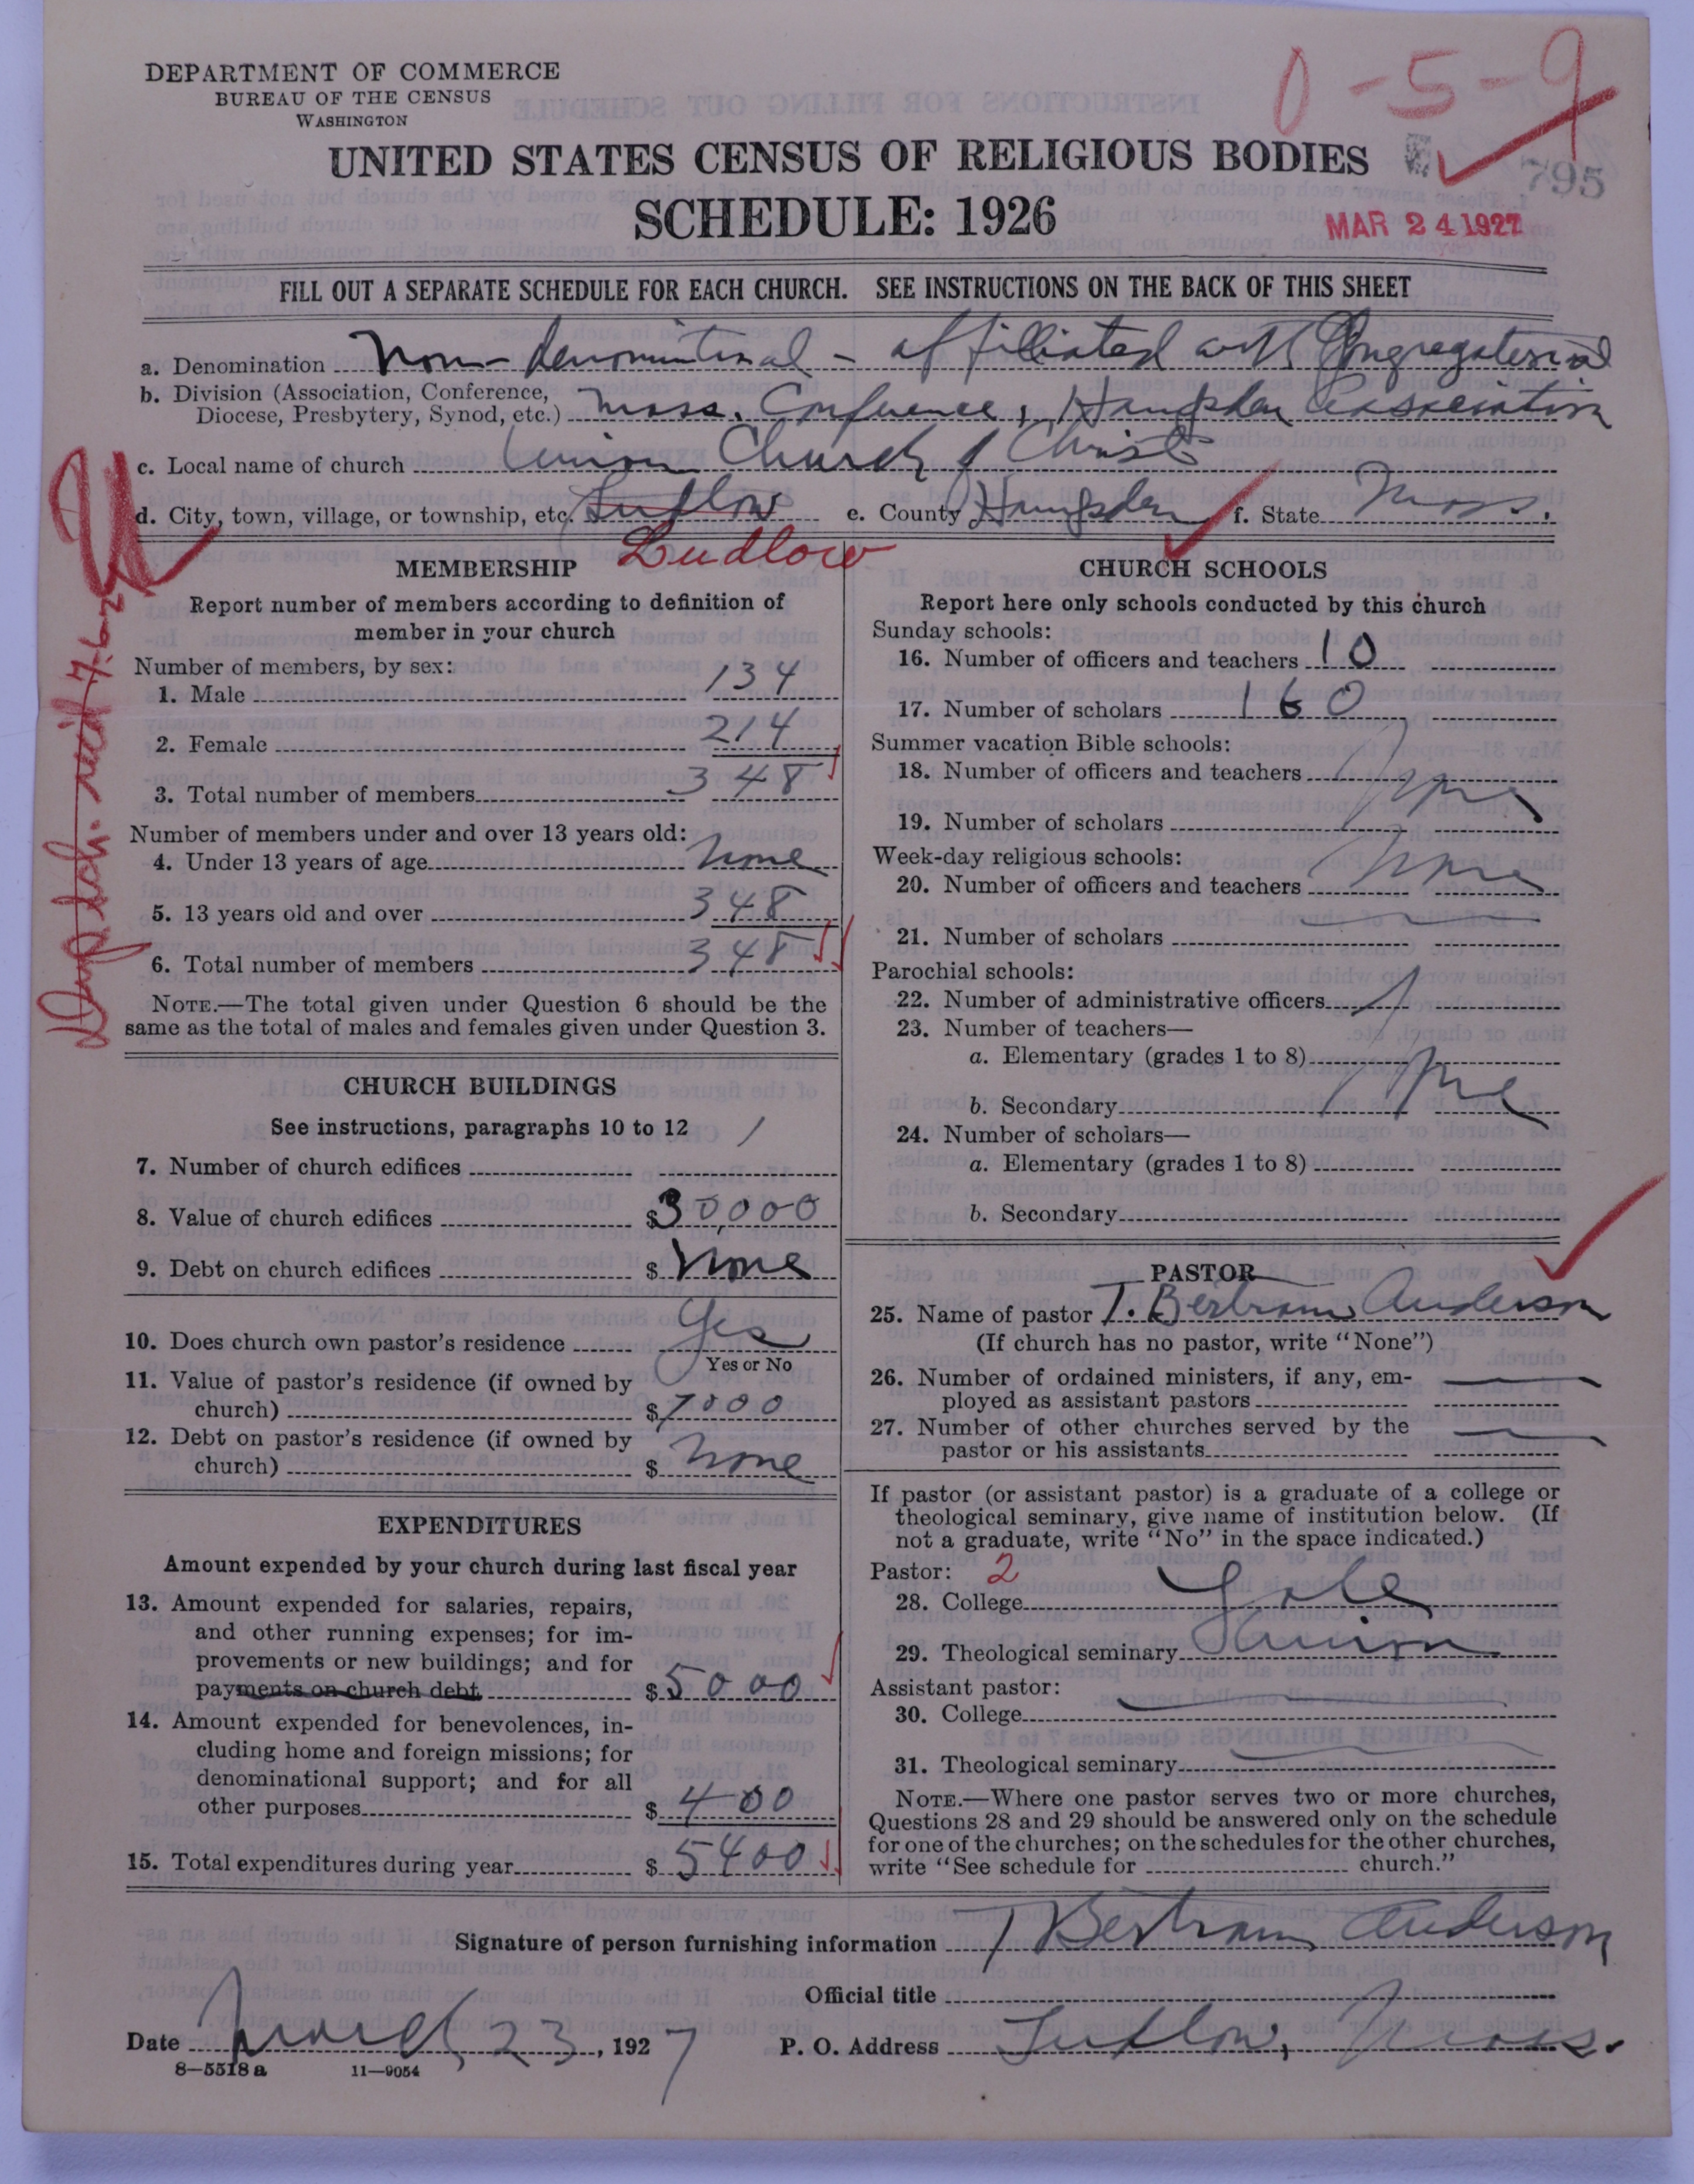 DEPARTMENT OF COMMERCE
BUREAU OF THE CENSUS
WASHINGTON
0-5-9
UNITED STATES CENSUS OF RELIGIOUS BODIES
795
SCHEDULE: 1926
MAR 24 1927
FILL OUT A SEPARATE SCHEDULE FOR EACH CHURCH. SEE INSTRUCTIONS ON THE BACK OF THIS SHEET
a. Denomination Non-Denominational - affiliated with Congregational
b. Division (Association, Conference, Diocese, Presbytery, Synod, etc.) Mass. Conference, Hampden Association
c. Local name of church Union Church of Christ
d. City, town, village, or township, etc. Ludlow e. County Hampden f. State Mass.
Ludlow
MEMBERSHIP
Report number of members according to definition of
member in your church
Number of members, by sex:
1. Male 134
2. Female 214
3. Total number of members 348
Number of members under and over 13 years old:
4. Under 13 years of age None
5. 13 years old and over 348
6. Total number of members 348
NOTE.—The total given under Question 6 should be the
same as the total of males and females given under Question 3.
CHURCH BUILDINGS
See instructions, paragraphs 10 to 12
7. Number of church edifices 1
8. Value of church edifices $30,000
9. Debt on church edifices $ None
10. Does church own pastor's residence Yes
Yes or No
11. Value of pastor's residence (if owned by
church) $7000
12. Debt on pastor's residence (if owned by
church) $ None
EXPENDITURES
Amount expended by your church during last fiscal year
13. Amount expended for salaries, repairs,
and other running expenses; for im-
provements or new buildings; and for
payments on church debt $5000
14. Amount expended for benevolences, in-
cluding home and foreign missions; for
denominational support; and for all
other purposes $ 400
15. Total expenditures during year $ 5400
CHURCH SCHOOLS
Report here only schools conducted by this church
Sunday schools:
16. Number of officers and teachers 10
17. Number of scholars 160
Summer vacation Bible schools:
18. Number of officers and teachers None
19. Number of scholars
Week-day religious schools:
20. Number of officers and teachers None
21. Number of scholars
Parochial schools:
22. Number of administrative officers
23. Number of teachers—
a. Elementary (grades 1 to 8) None
b. Secondary
24. Number of scholars—
a. Elementary (grades 1 to 8)
b. Secondary
PASTOR
25. Name of pastor T. Bertram Anderson
(If church has no pastor, write "None")
26. Number of ordained ministers, if any, em-
ployed as assistant pastors
27. Number of other churches served by the
pastor or his assistants
If pastor (or assistant pastor) is a graduate of a college or
theological seminary, give name of institution below. (If
not a graduate, write "No" in the space indicated.)
Pastor: 2
28. College Yale
29. Theological seminary Union
Assistant pastor:
30. College
31. Theological seminary
NOTE.—Where one pastor serves two or more churches,
Questions 28 and 29 should be answered only on the schedule
for one of the churches; on the schedules for the other churches,
write "See schedule for church."
Signature of person furnishing information T Bertram Anderson
Official title
Date March 23, 1927 P. O. Address Ludlow, Mass.
8—5518 a 11—9054